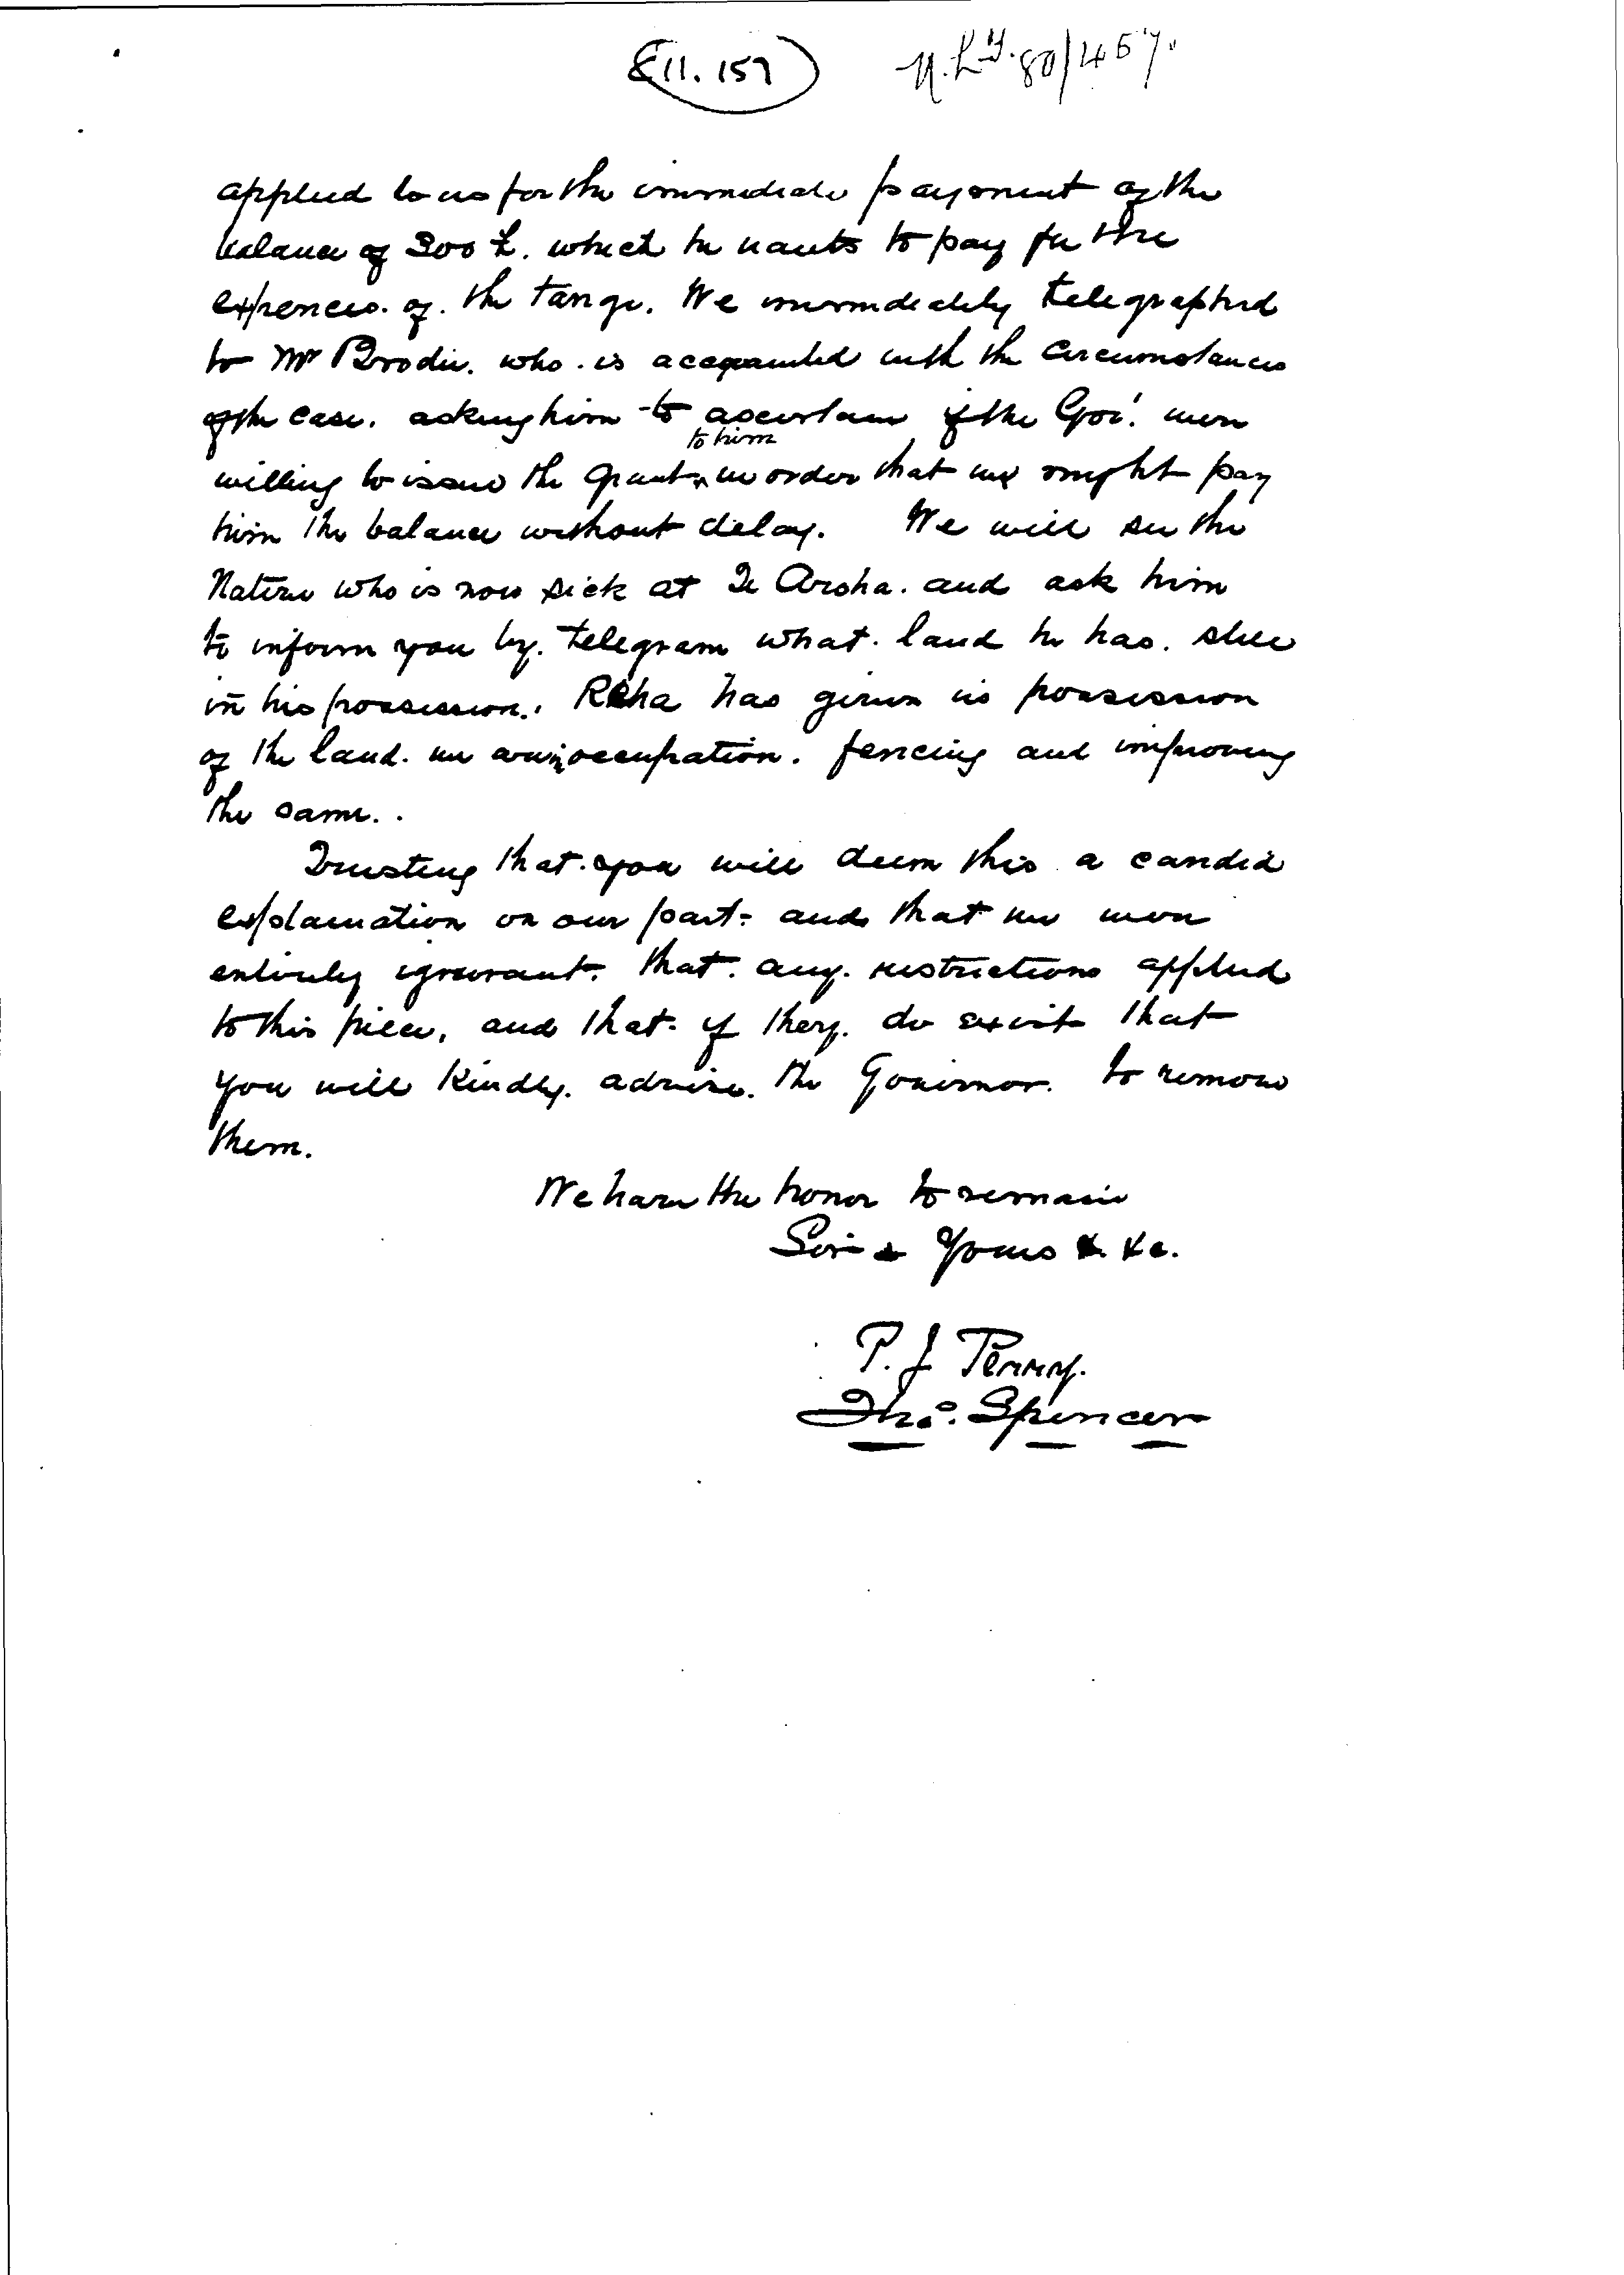 E11. 157 N.L.P. 80/457.
applied to us for the immediate payment of the
balance of 300 £. which he wants to pay for the
expences. of. the tangi. We immediately telegraphed
to Mr Brodie. who. is acquainted with the circumstances
of the case. asking him to ascertain if the Gov.t were
to him
willing to issue the grant in order that we might pay
him the balance without delay. We will see the
Native who is now sick at Te Aroha. and ask him
to inform you by. telegram what. land he has. still
in his possession. Reha has given us possession
of the land. we are in occupation. fencing and improving
the same..
Trusting that you will deem this a candid
explanation on our part. and that we were
entirely ignorant. that. any. restrictions applied
to this piece, and that. if they. do exist that
you will kindly. advise. the Governor. to remove
them.
We have the honor to remain
Sir Yours &c.
P. J Perry.
Thos. Spencer